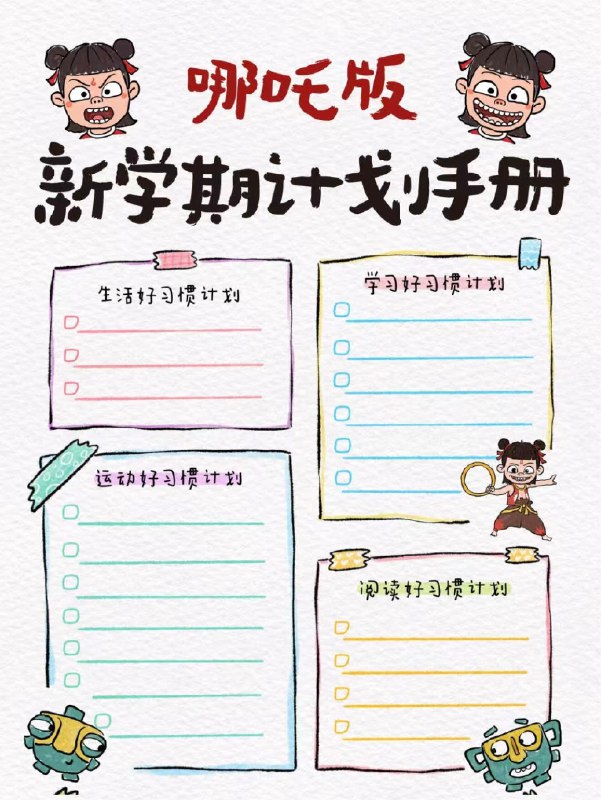 哪吒版
新学期计划手册
生活好习惯计划
学习好习惯计划
运动好习惯计划
阅读好习惯计划